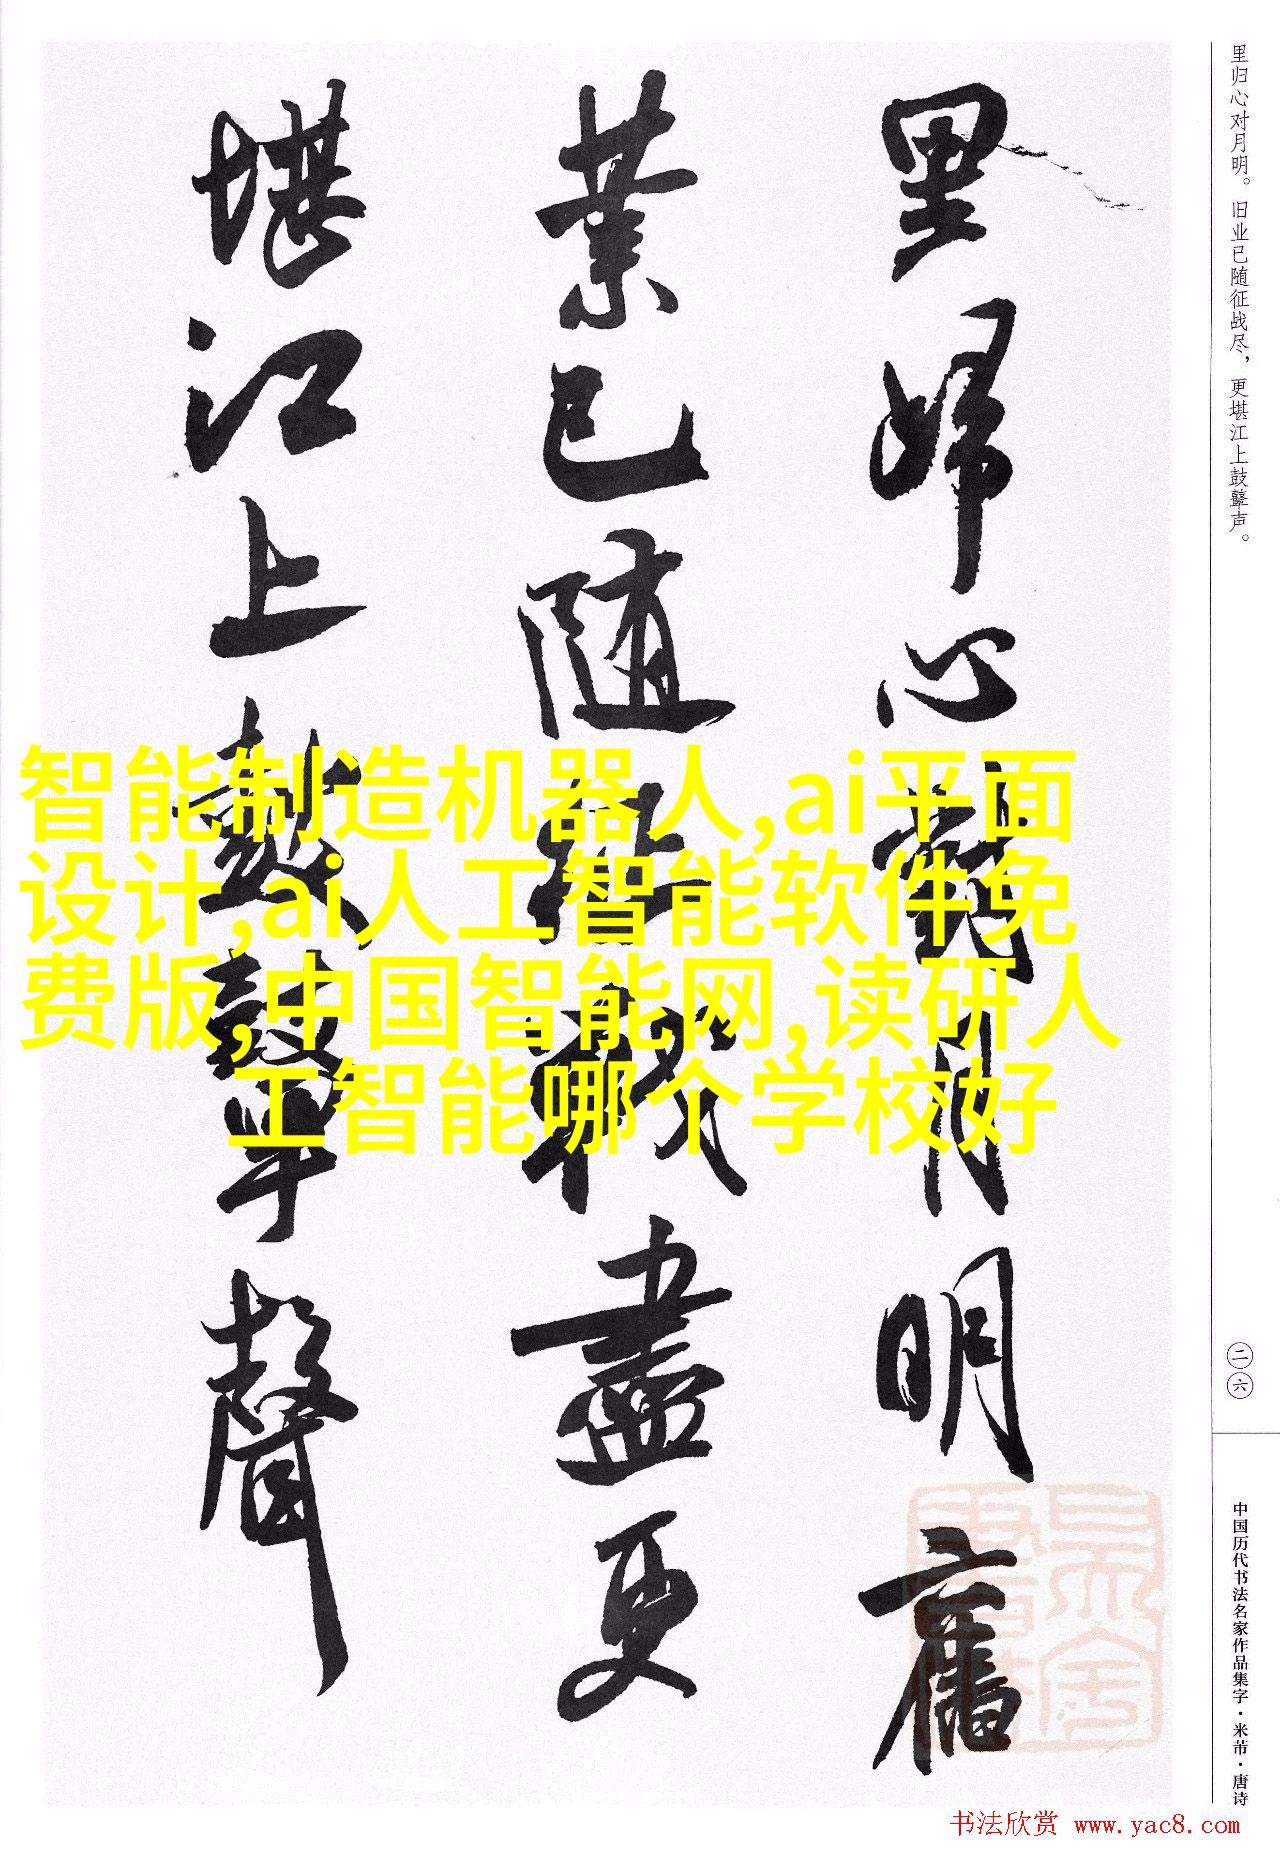 里归心对月明。旧业已随征战尽，更堪江上鼓鼙声。
里歸心對月明舊
業已隨征戰盡更
堪江上鼓鼙聲
智能制造机器人,ai平面
设计,ai人工智能软件免
费版,中国智能网,读研人
工智能哪个学校好
二六
中国历代书法名家作品集字·米芾·唐诗
书法欣赏 www.yac8.com